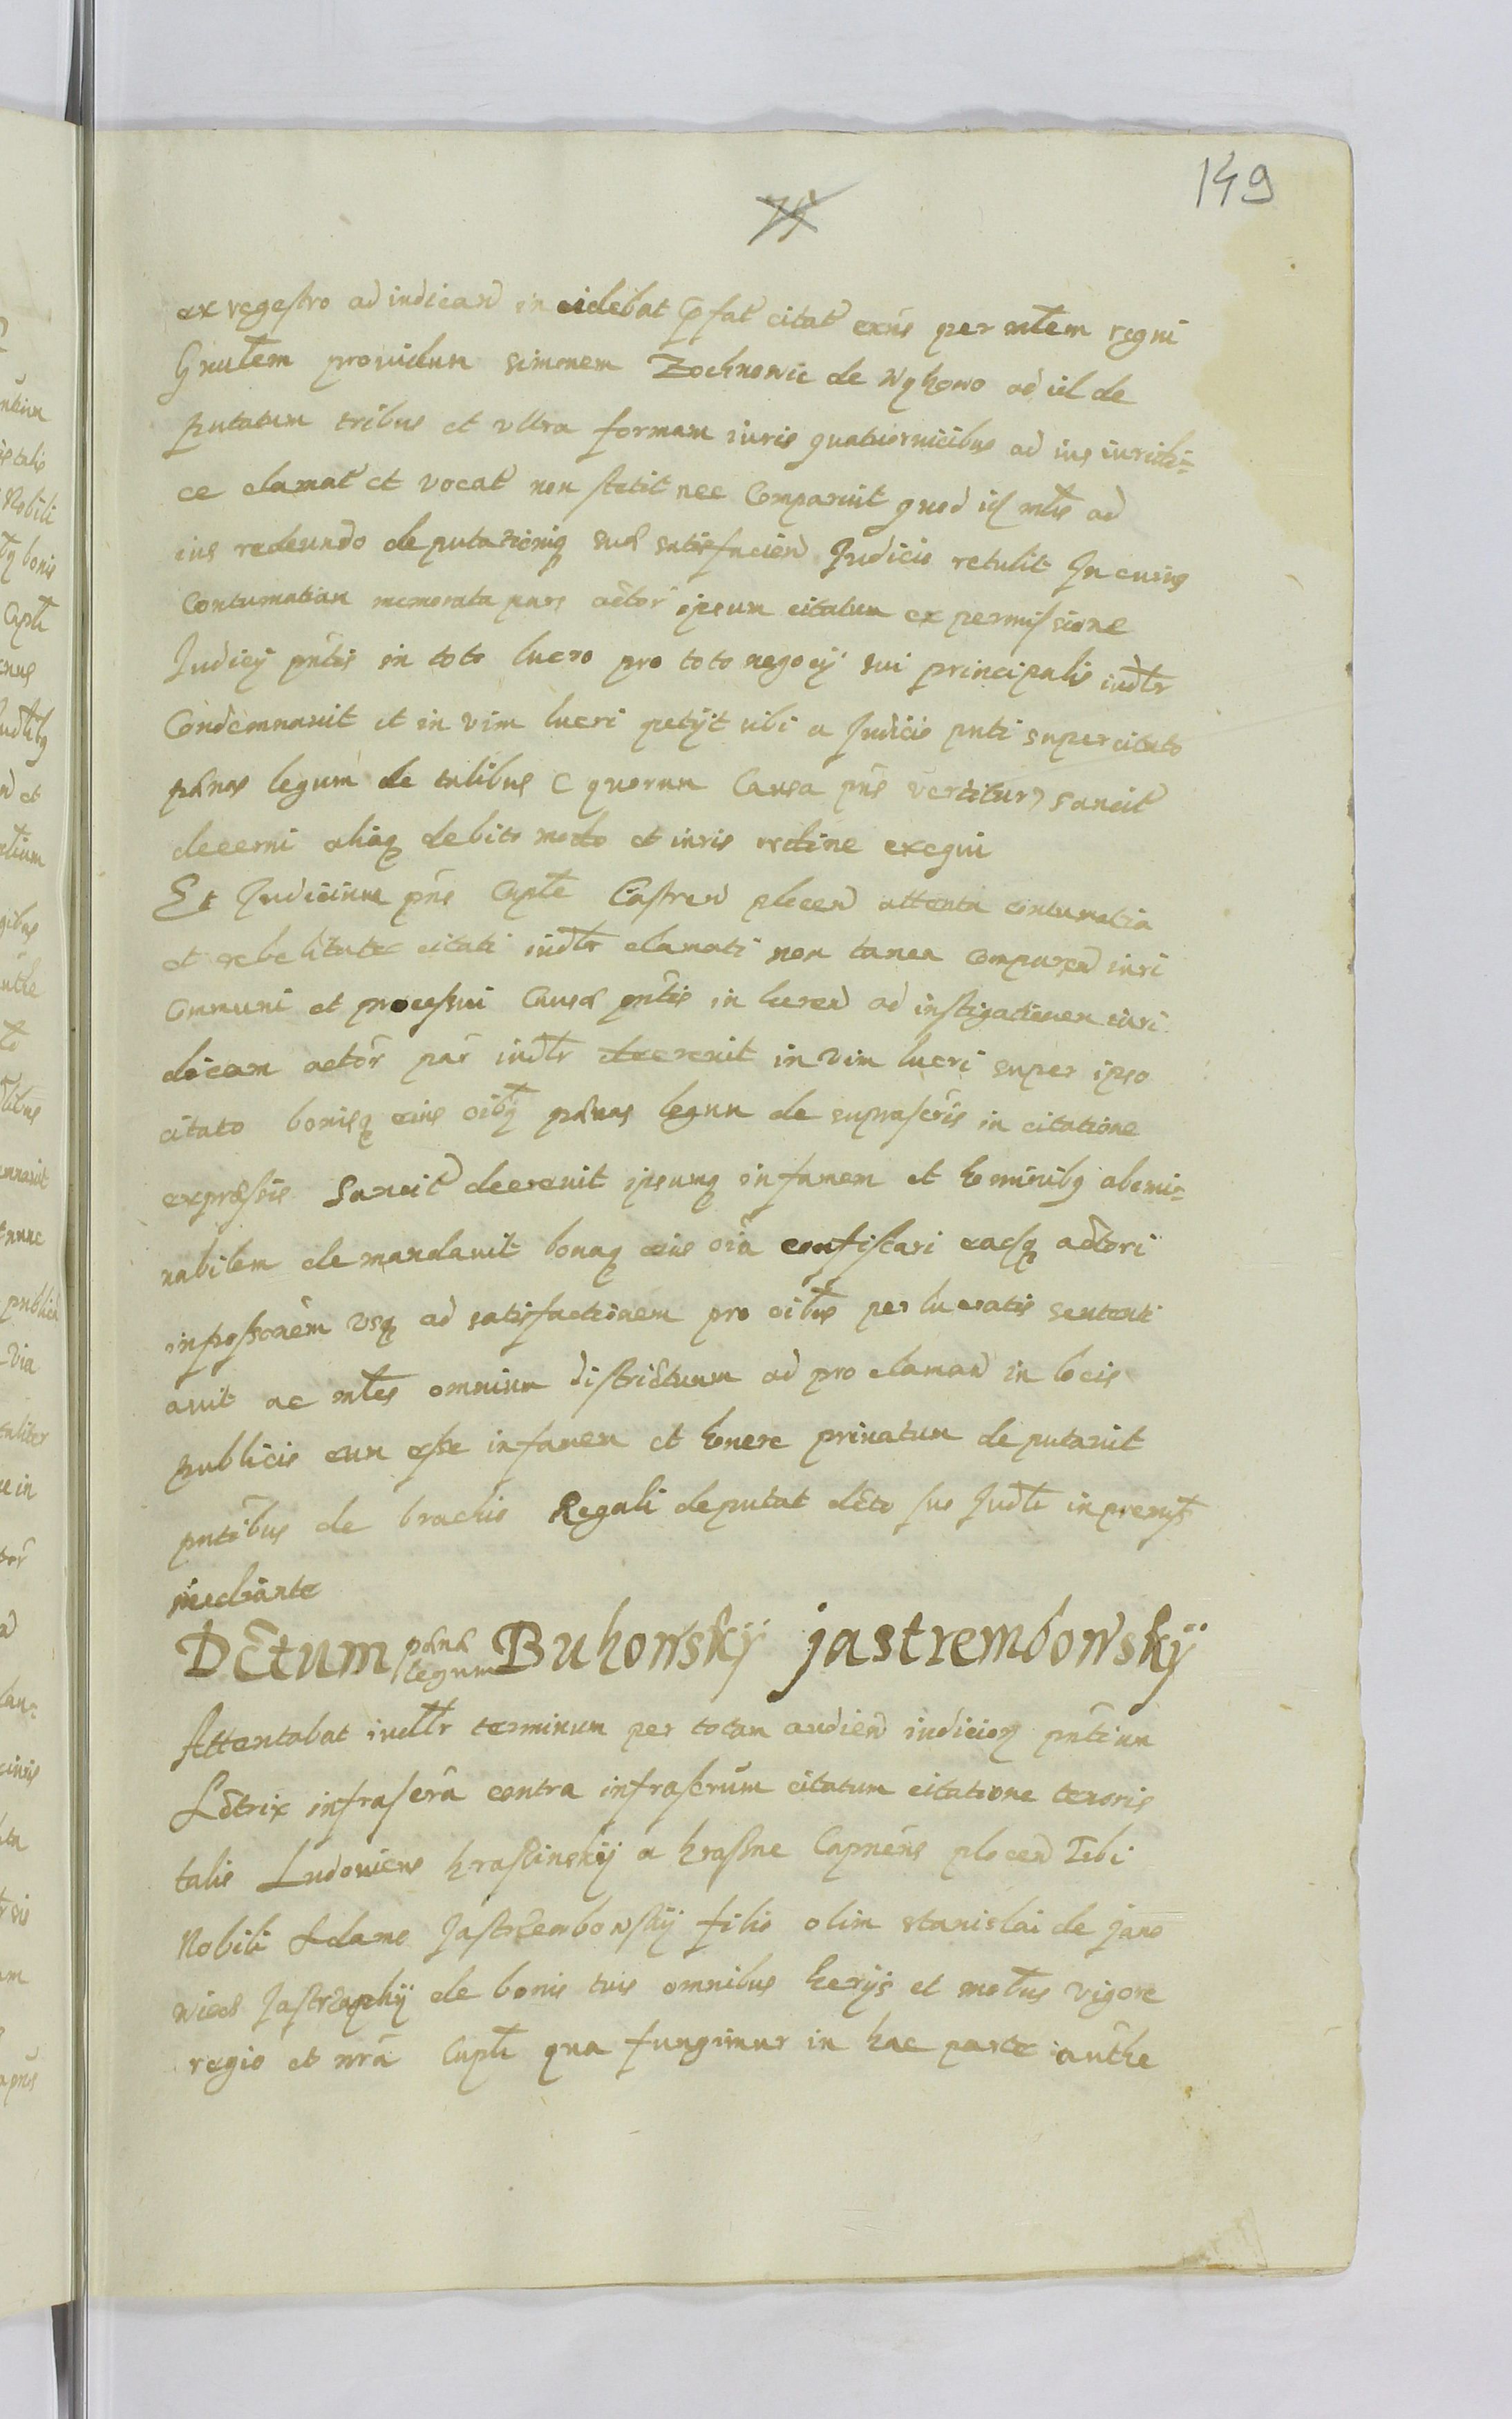 149
ex regestro ad iudicand incidebat p̄fat citat exñs per mt̃em regni
Gñalem prouidum Simonem Zochnowic de Wykowo ad id de
putatum tribus et vltra formam iuris quatuornicibus ad ius iuridi=
ce clamat et vocat non stetit nec Comparuit quod id mt̃is ad
ius redeundo deputationiq suæ satisfaciend Judicio retulit In cuius
Contumatiam memorata pars actor ipsum citatum ex permissione
Judicij pñtis in toto lucro pro toto negocij sui principalis iudl̃r
Condemnauit et in vim lucri petijt sibi a Judicio pñti super citato
pænas legum de talibus ( quorum Causa pñs vertitur) sancit
decerni aliaq debito modo et iuris ordine exequi
Et Judicium pñs Capl̃e Castren plocen attenta contumatia
et rebelitate citati iudl̃r clamati non tamen comparen iuri
Communi et processui Causæ pñtis in heren ad instigationem iuri
dicam actor par iudl̃r decreuit in vim lucri super ipso
citato bonisq eius oĩbq pænas legum de suprascr̃is in citatione
expressis Sancit decreuit ipsumq infamem et hominibq abomi=
nabilem demandauit bonaq eius oĩa confiscari eaq actori
in possonem vsq ad satisfactionem pro oĩbus perlucratis sententi
auit ac mt̃es omnium districtuum ad proclamand in locis
publicis eum esse infamem et honore priuatum deputauit
pñtibus de brachio Regali deputat dcto suo Judl̃i in premiss
mediante
Dc̃tum pænæ legum Bukowskij jastrembowskij
Attentabat iudl̃r terminum per totam audien iudiciorq pñtium
Actrix infrascr̃a contra infrascr̃um citatum citatione tenoris
talis Ludouicus krassinskij a krasne Capneus plocen Tibi
Nobili Adamo Jastrzembowskij filio olim stanislai de jano
wiecz Jastrząpkij de bonis tuis omnibus hæriis et mobus vigore
regio et nr̃a Capl̃i qua fungimur in hac parte auth̃e